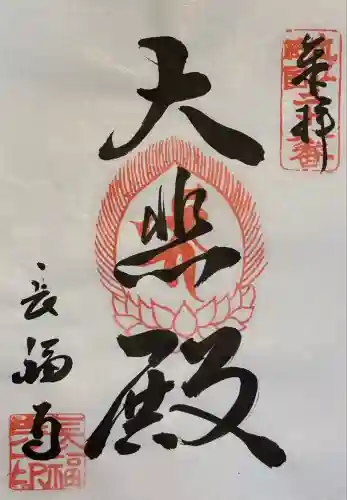 奉拝
大悲殿
長福寺
長福
寺印